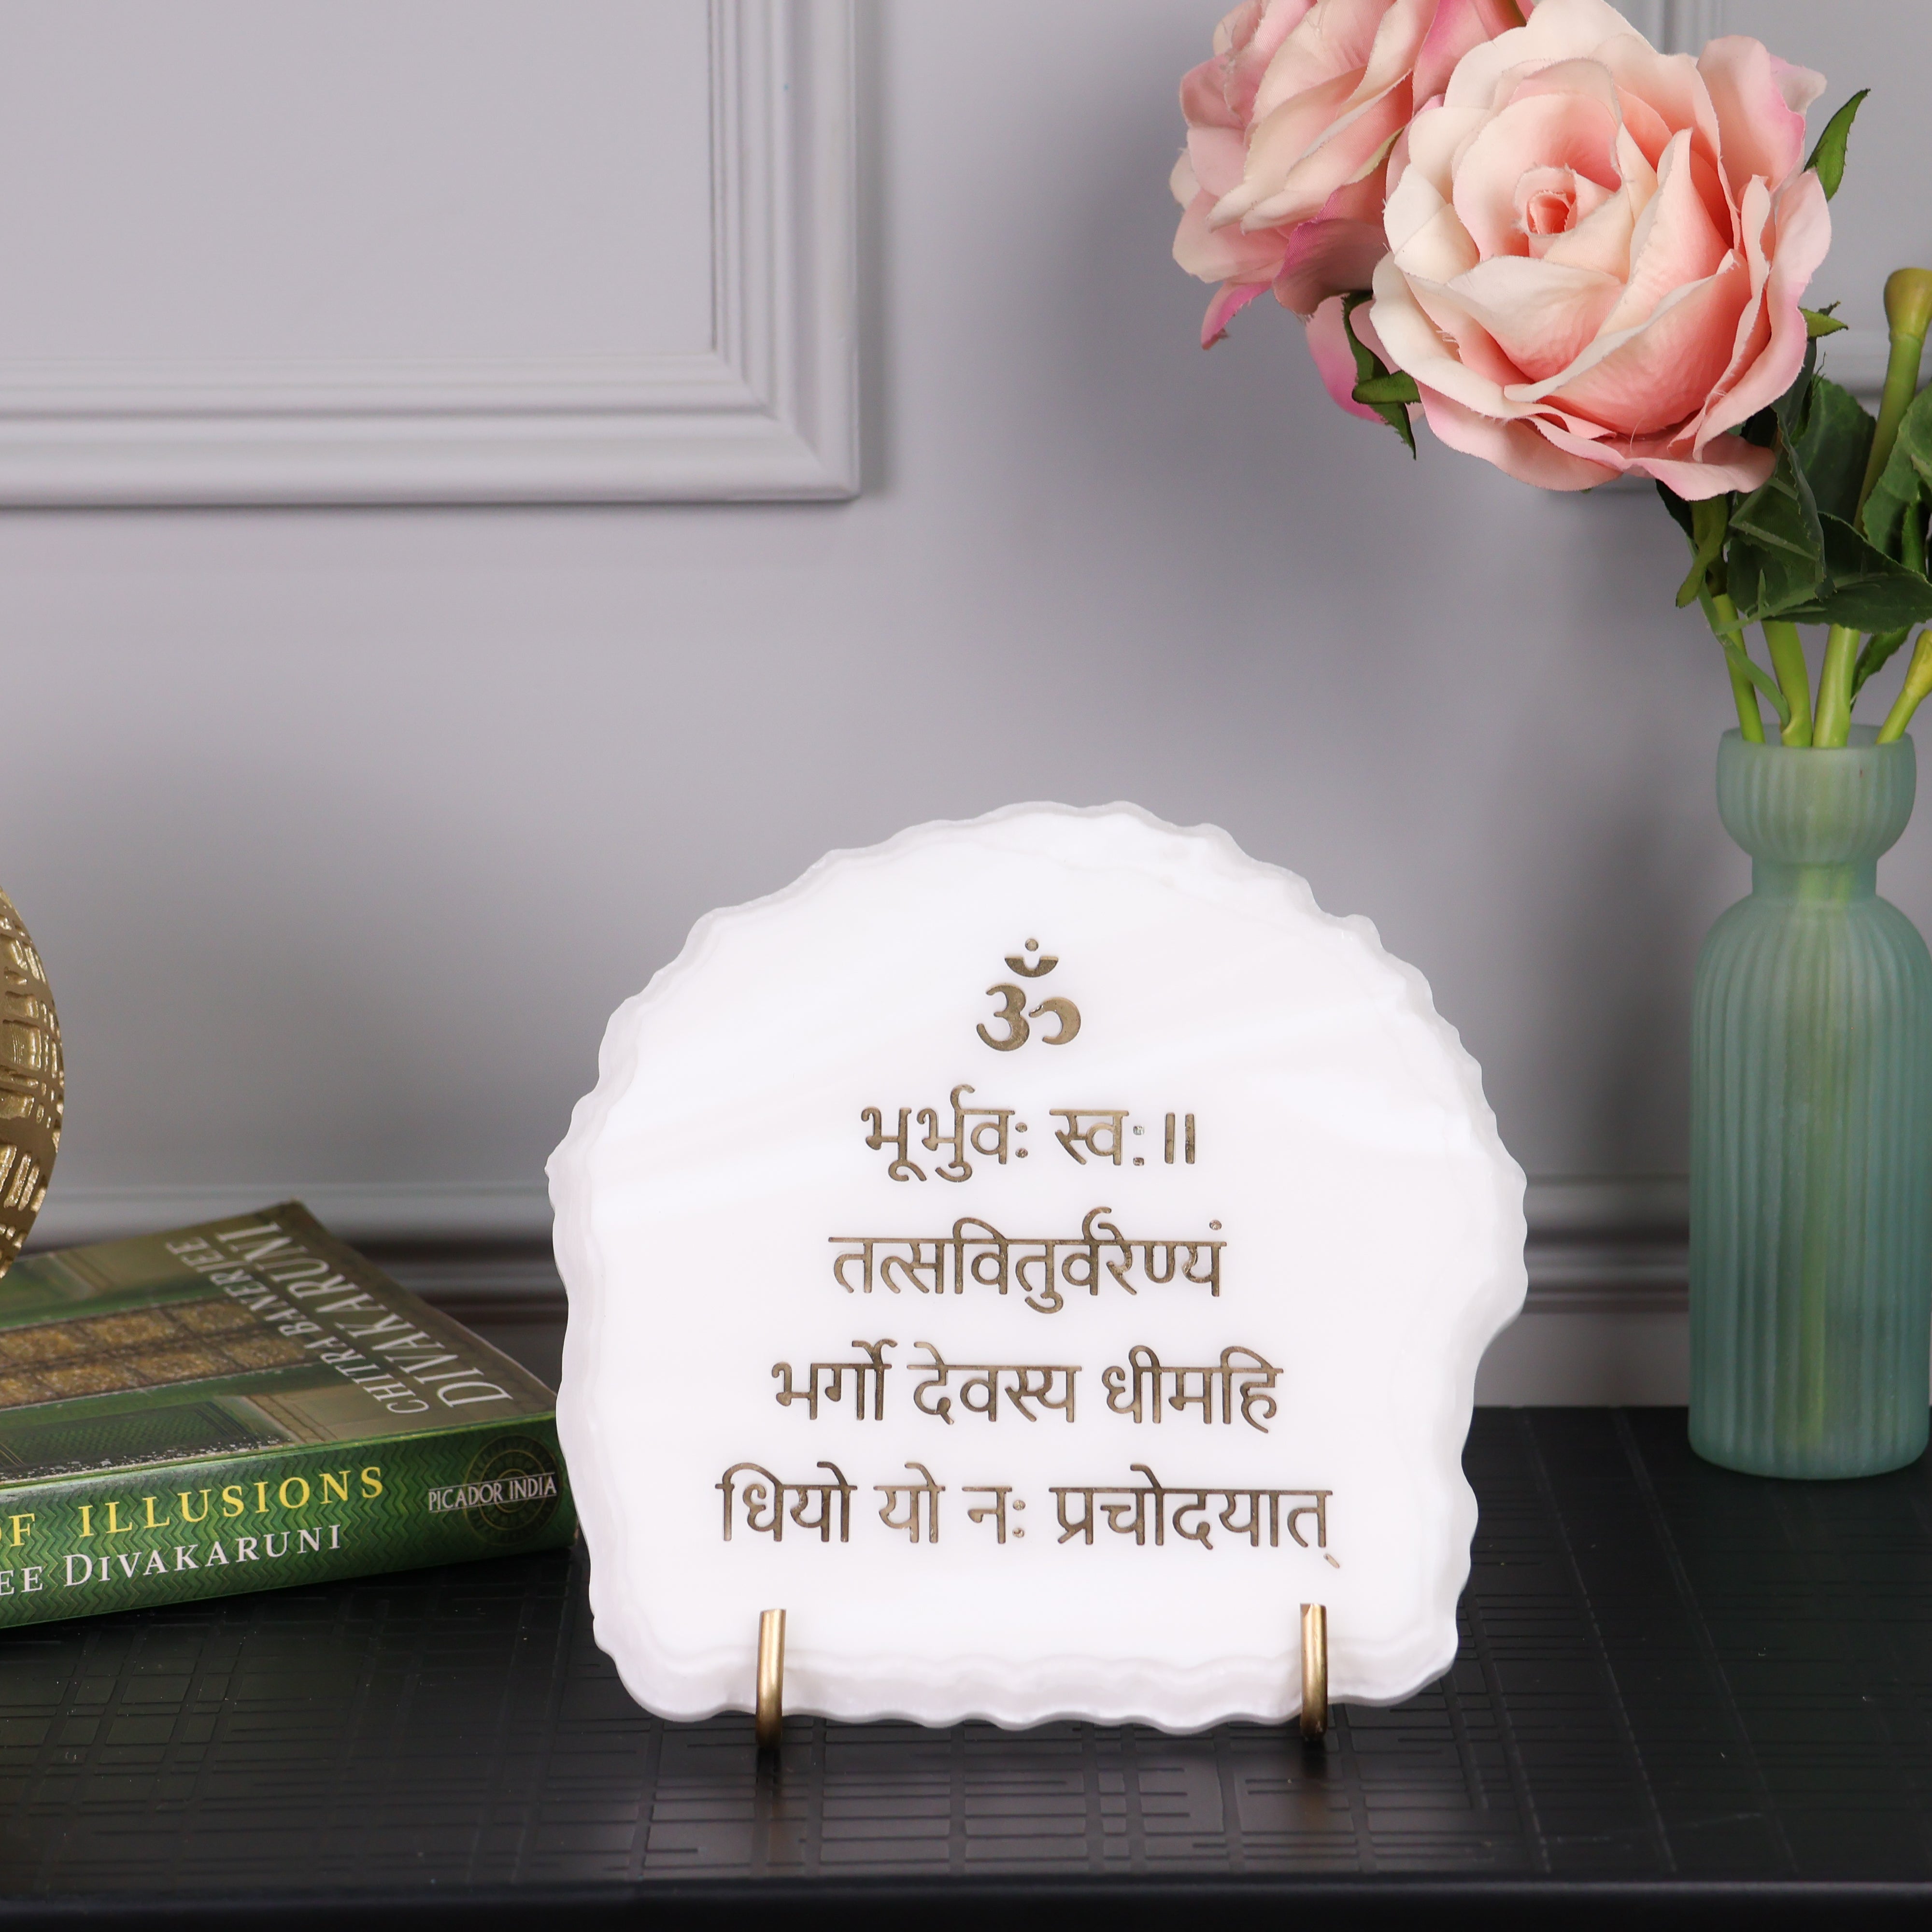 ॐ
भूर्भुवः स्वः॥
तत्सवितुर्वरेण्यं
भर्गो देवस्य धीमहि
धियो यो नः प्रचोदयात्
CHITRA BANERJEE
DIVAKARUNI
OF ILLUSIONS
EE DIVAKARUNI
PICADOR INDIA